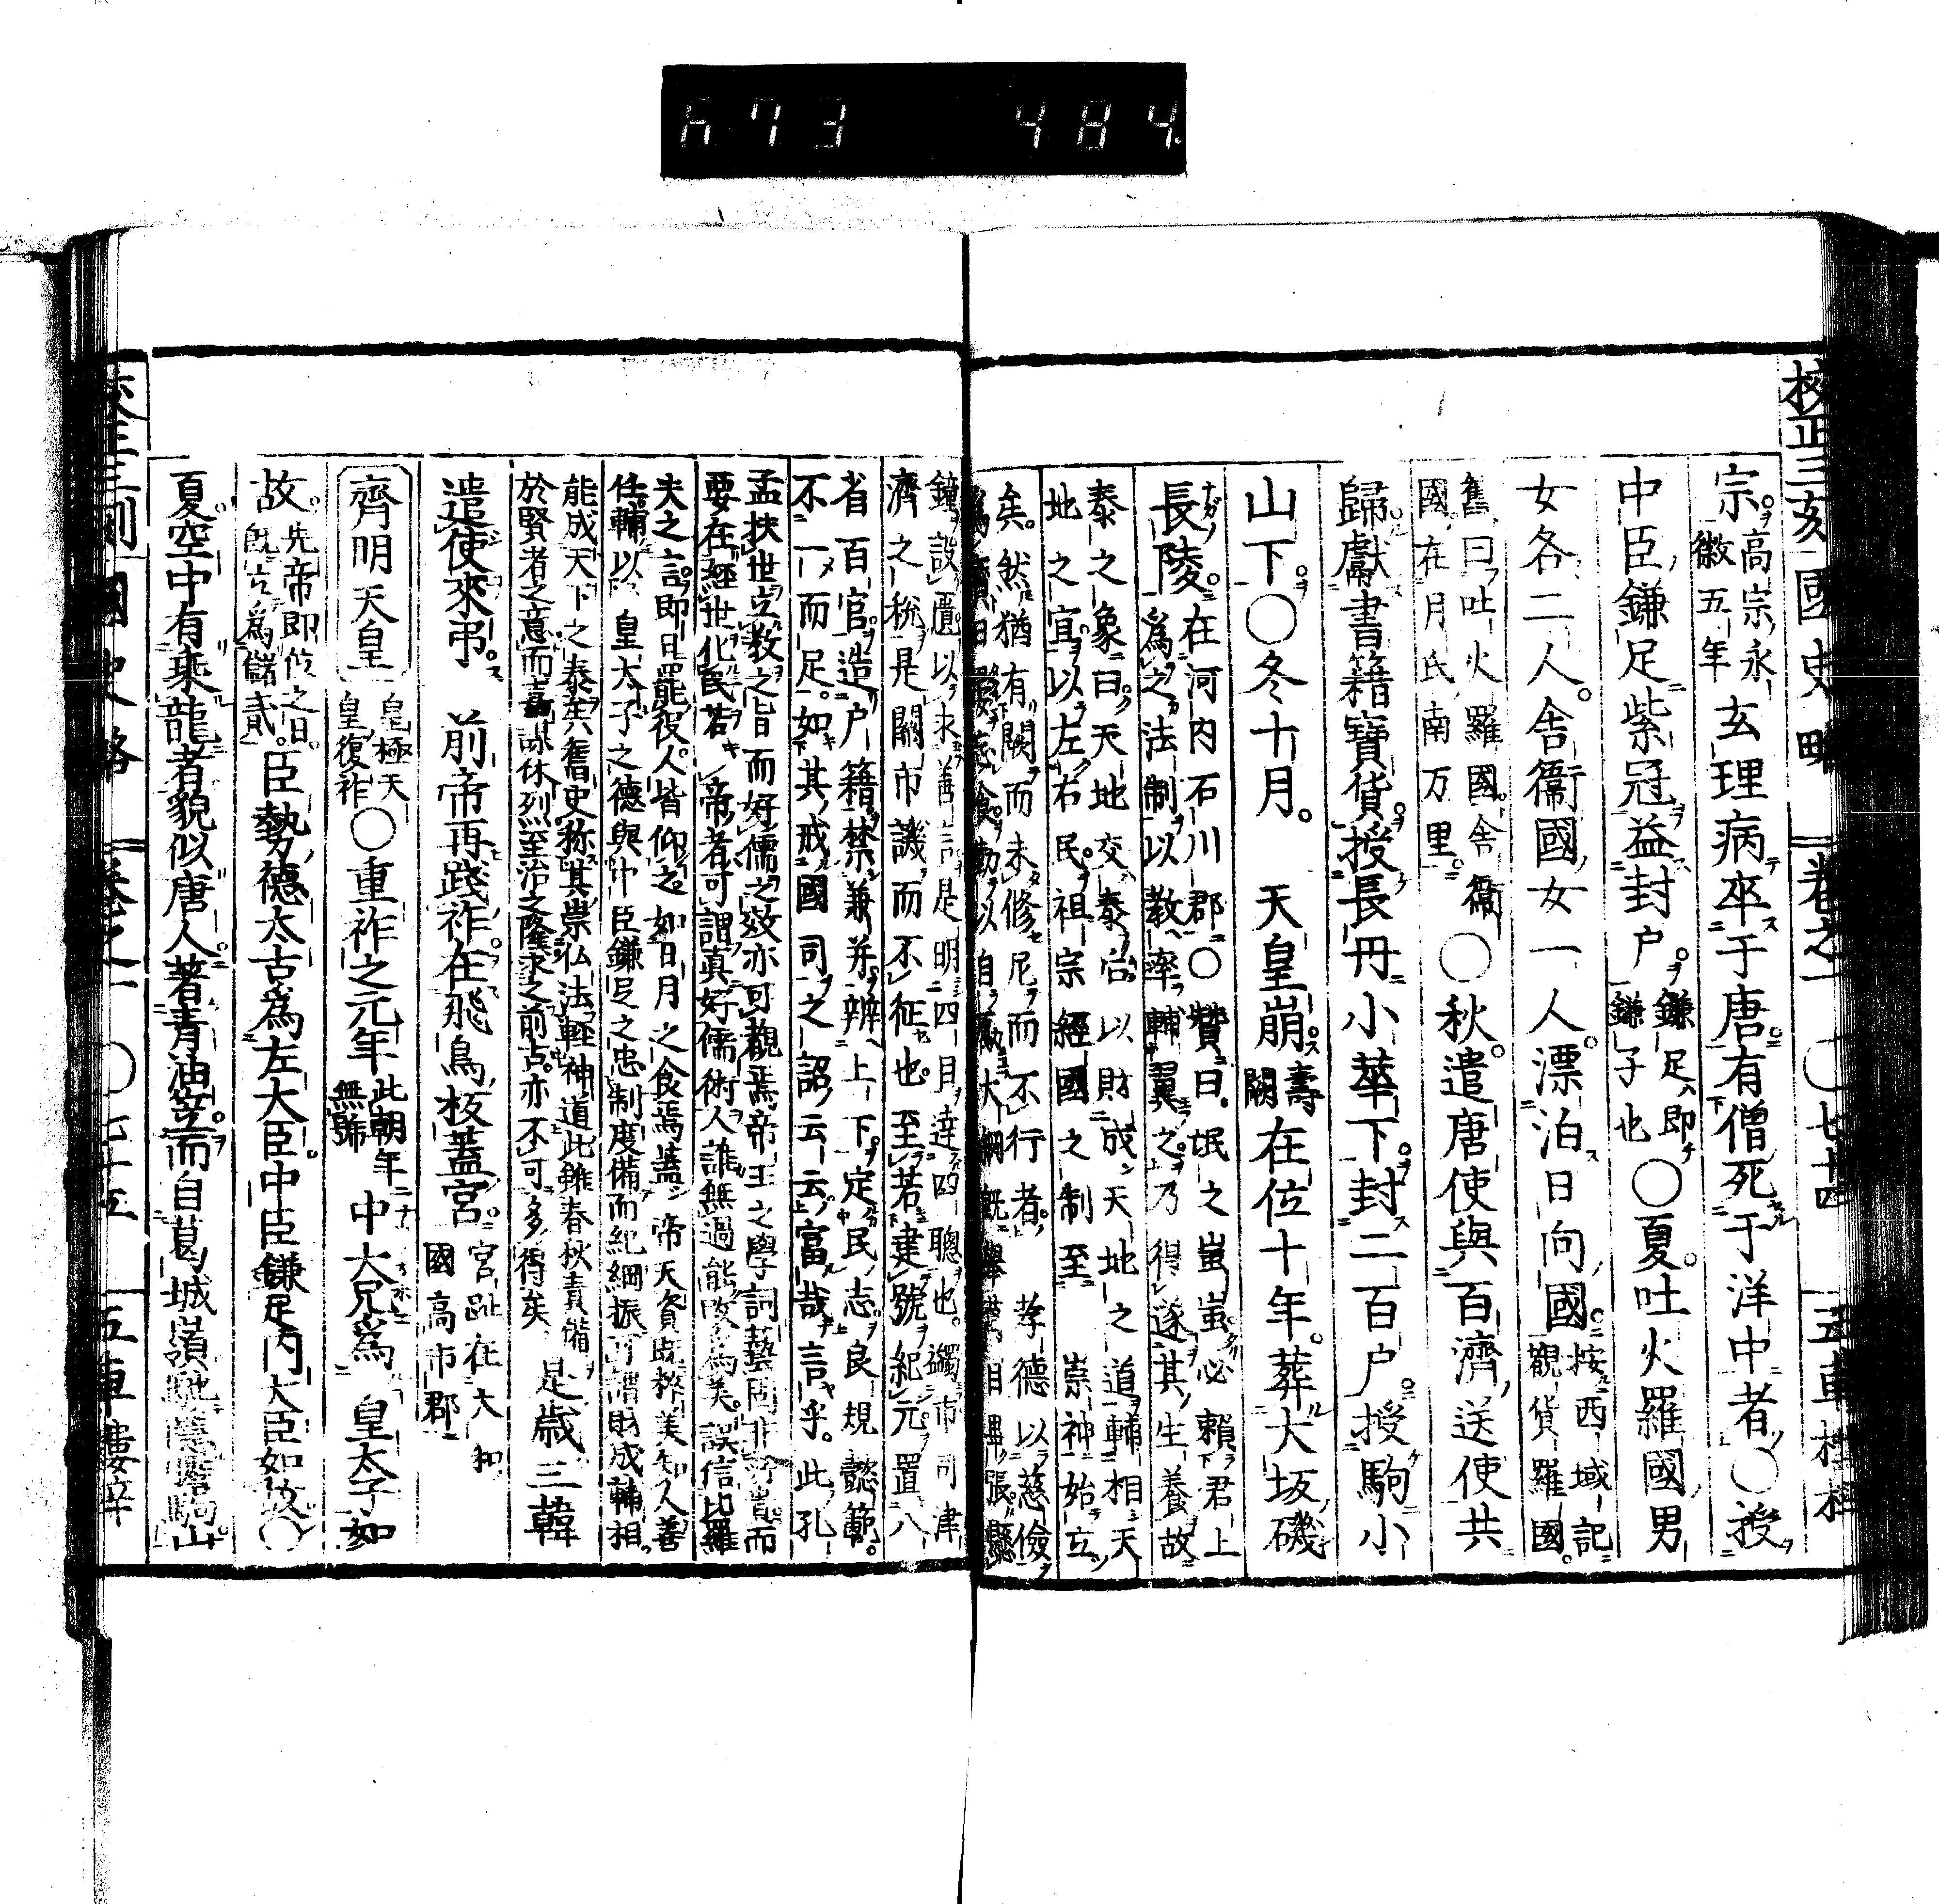 校正三刻 國史略 卷之一 ○七十四 五車樓梓
宗。高宗永徽五年 玄理病卒于唐。有僧死于洋中者。○授
中臣鎌足紫冠。益封戸。鎌足即鎌子也 ○夏。吐火羅國男
女各二人。舎衞國女一人。漂泊日向國。按西域記覩貨羅國。
舊曰吐火羅國。舎衞國。在月氏南万里。○秋。遣唐使與百濟送使共
歸。獻書籍寶貨。授長丹小華下。封二百戸。授駒小
山下。○冬十月。 天皇崩。壽闕 在位十年。葬大坂磯
長陵。在河内石川郡 ○贊曰。氓之蚩蚩。必賴君上
爲之法制。以教率輔翼之。乃得遂其生養。故
泰之象曰。天地交泰。后以財成天地之道。輔相天
地之宜。以左右民。祖宗經國之制。至崇神始立
矣。然猶有闕而未修。尼而不行者。孝德以慈儉
鐘設匭以求善言。是明四目。達四聰也。蠲市司津
濟之税。是關市譏而不征也。至若建號紀元。置八
省百官。造戸籍。禁兼并。辨上下。定民志。良規懿範。
不一而足。如其戒國司之詔云云。富哉言乎。此孔
孟扶世立教之旨。而好儒之效亦可觀焉。帝王之學。詞藝固非所貴。而
要在經世化民。若帝者。可謂眞好儒術。人誰無過。能改爲美。誤信比羅
夫之言。即日罷役。人皆仰之。如日月之食焉。蓋帝天資純粹。美知人善
任。輔以皇太子之德與中臣鎌足之忠。制度備而紀綱振。可謂財成輔相。
能成天下之泰矣。舊史称其崇仏法輕神道。此雖春秋責備
於賢者之意。而嘉謀休烈。至治之隆。求之前古。亦不可多得矣。 是歳三韓
遣使來弔。 前帝再踐祚。在飛鳥板蓋宮。宮趾在大和國高市郡
齊明天皇 皇極天皇復祚 ○重祚之元年 此朝年無號 中大兄爲 皇太子如
故。先帝即位之日。既立爲儲貳。臣勢德太古爲左大臣。中臣鎌足内大臣如故。○
夏。空中有乘龍者。貌似唐人。著青油笠。而自葛城嶺馳隱膽駒山。
國史略 卷之一 ○七十五 五車樓梓